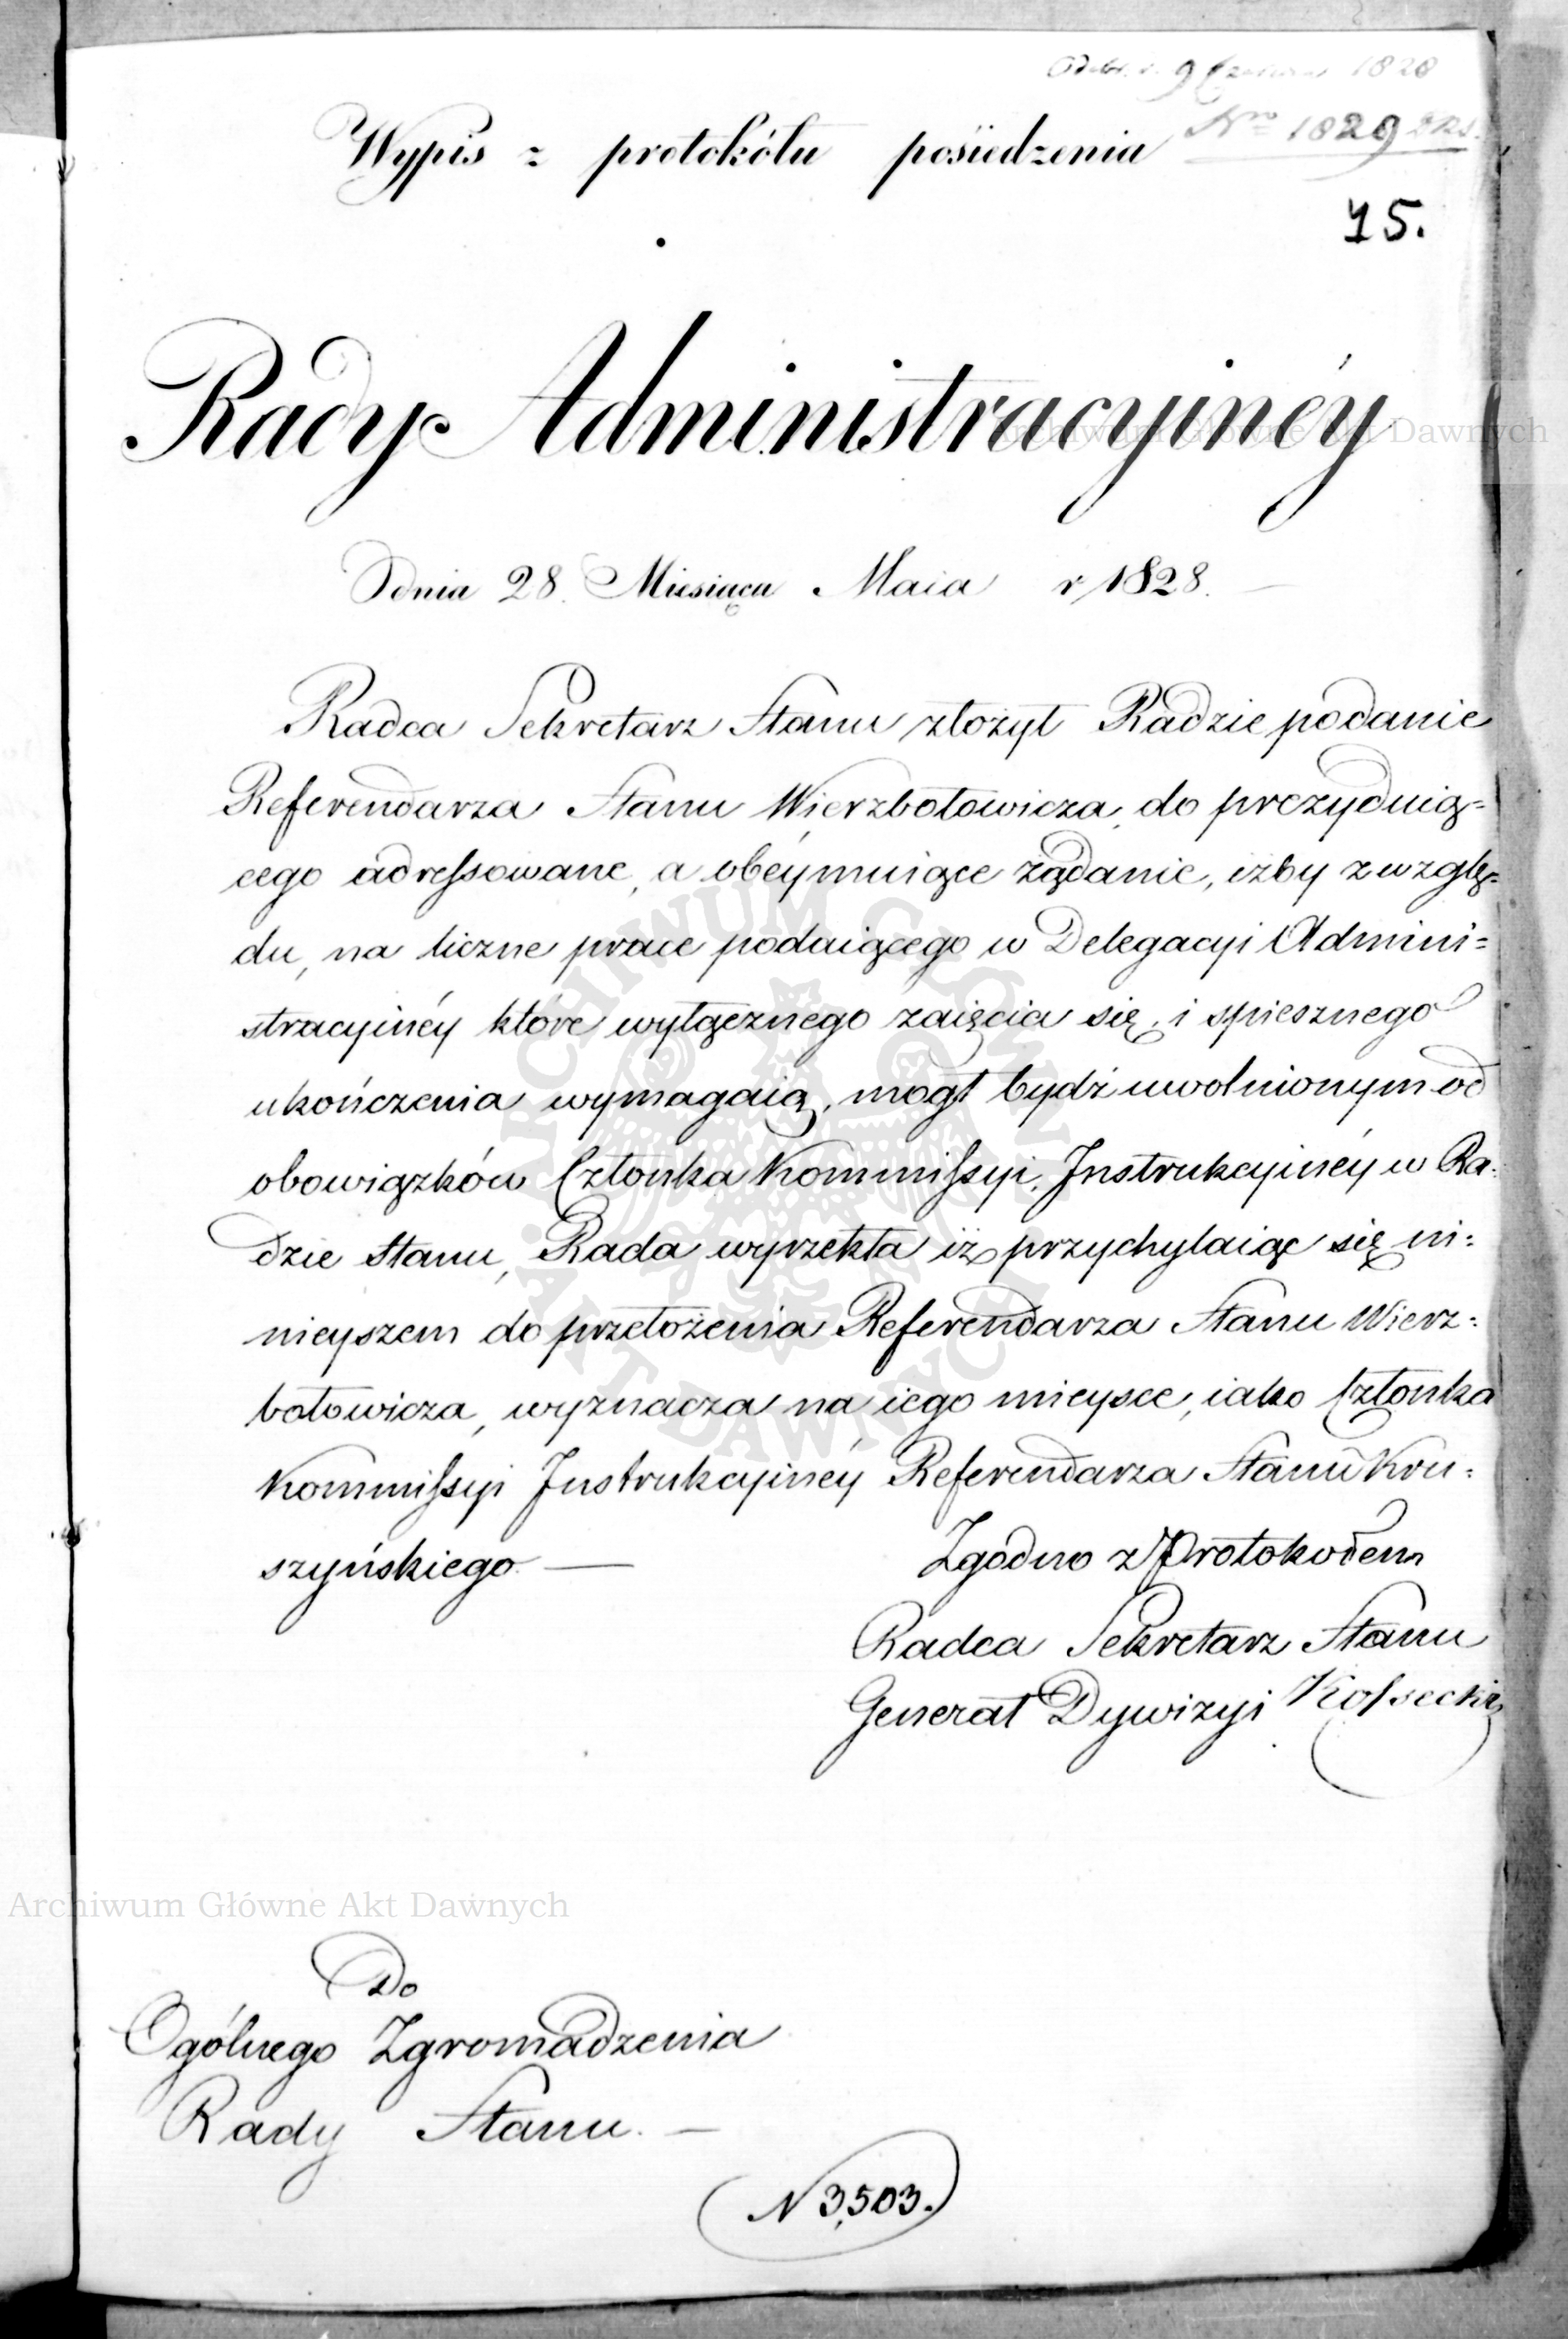 9 Czerwca 1828
Nro 1829
Wypis z protokółu posiedzenia
15.
Rady Administracyinéy
Archiwum Główne Akt Dawnych
Odnia 28. Miesiąca Maia r. 1828.
Radca Sekretarz Stanu złożył Radzie podanie
Referendarza Stanu Wierzbołowicza, do prezyduią-
cego adressowane, a obéymuiące żądanie, iżby z wzglę-
du, na liczne prace podaiącego w Delegacyi Admini=
stracyinéy które wyłącznego zaięcia się, i spiesznego
ukończenia wymagaią, mogł bydź uwolnionym od
obowiązków Członka Kommissyi, Instrukcyinéy w Ra-
dzie Stanu, Rada wyrzekła iż przychylaiąc się ni:
nieyszem do przełożenia Referendarza Stanu Wierz:
bołowicza, wyznacza na iego mieysce, iako Członka
Kommissyi Instrukcyinéy Referendarza Stanu Kru:
szyńskiego. —
Zgodno z Protokółem
Radca Sekretarz Stanu
Generał Dywizyi Kossecki
Archiwum Główne Akt Dawnych
Do
Ogólnego Zgromadzenia
Rady Stanu. —
N 3,503.
ARCHIWUM GŁÓWNE
AKT DAWNYCH